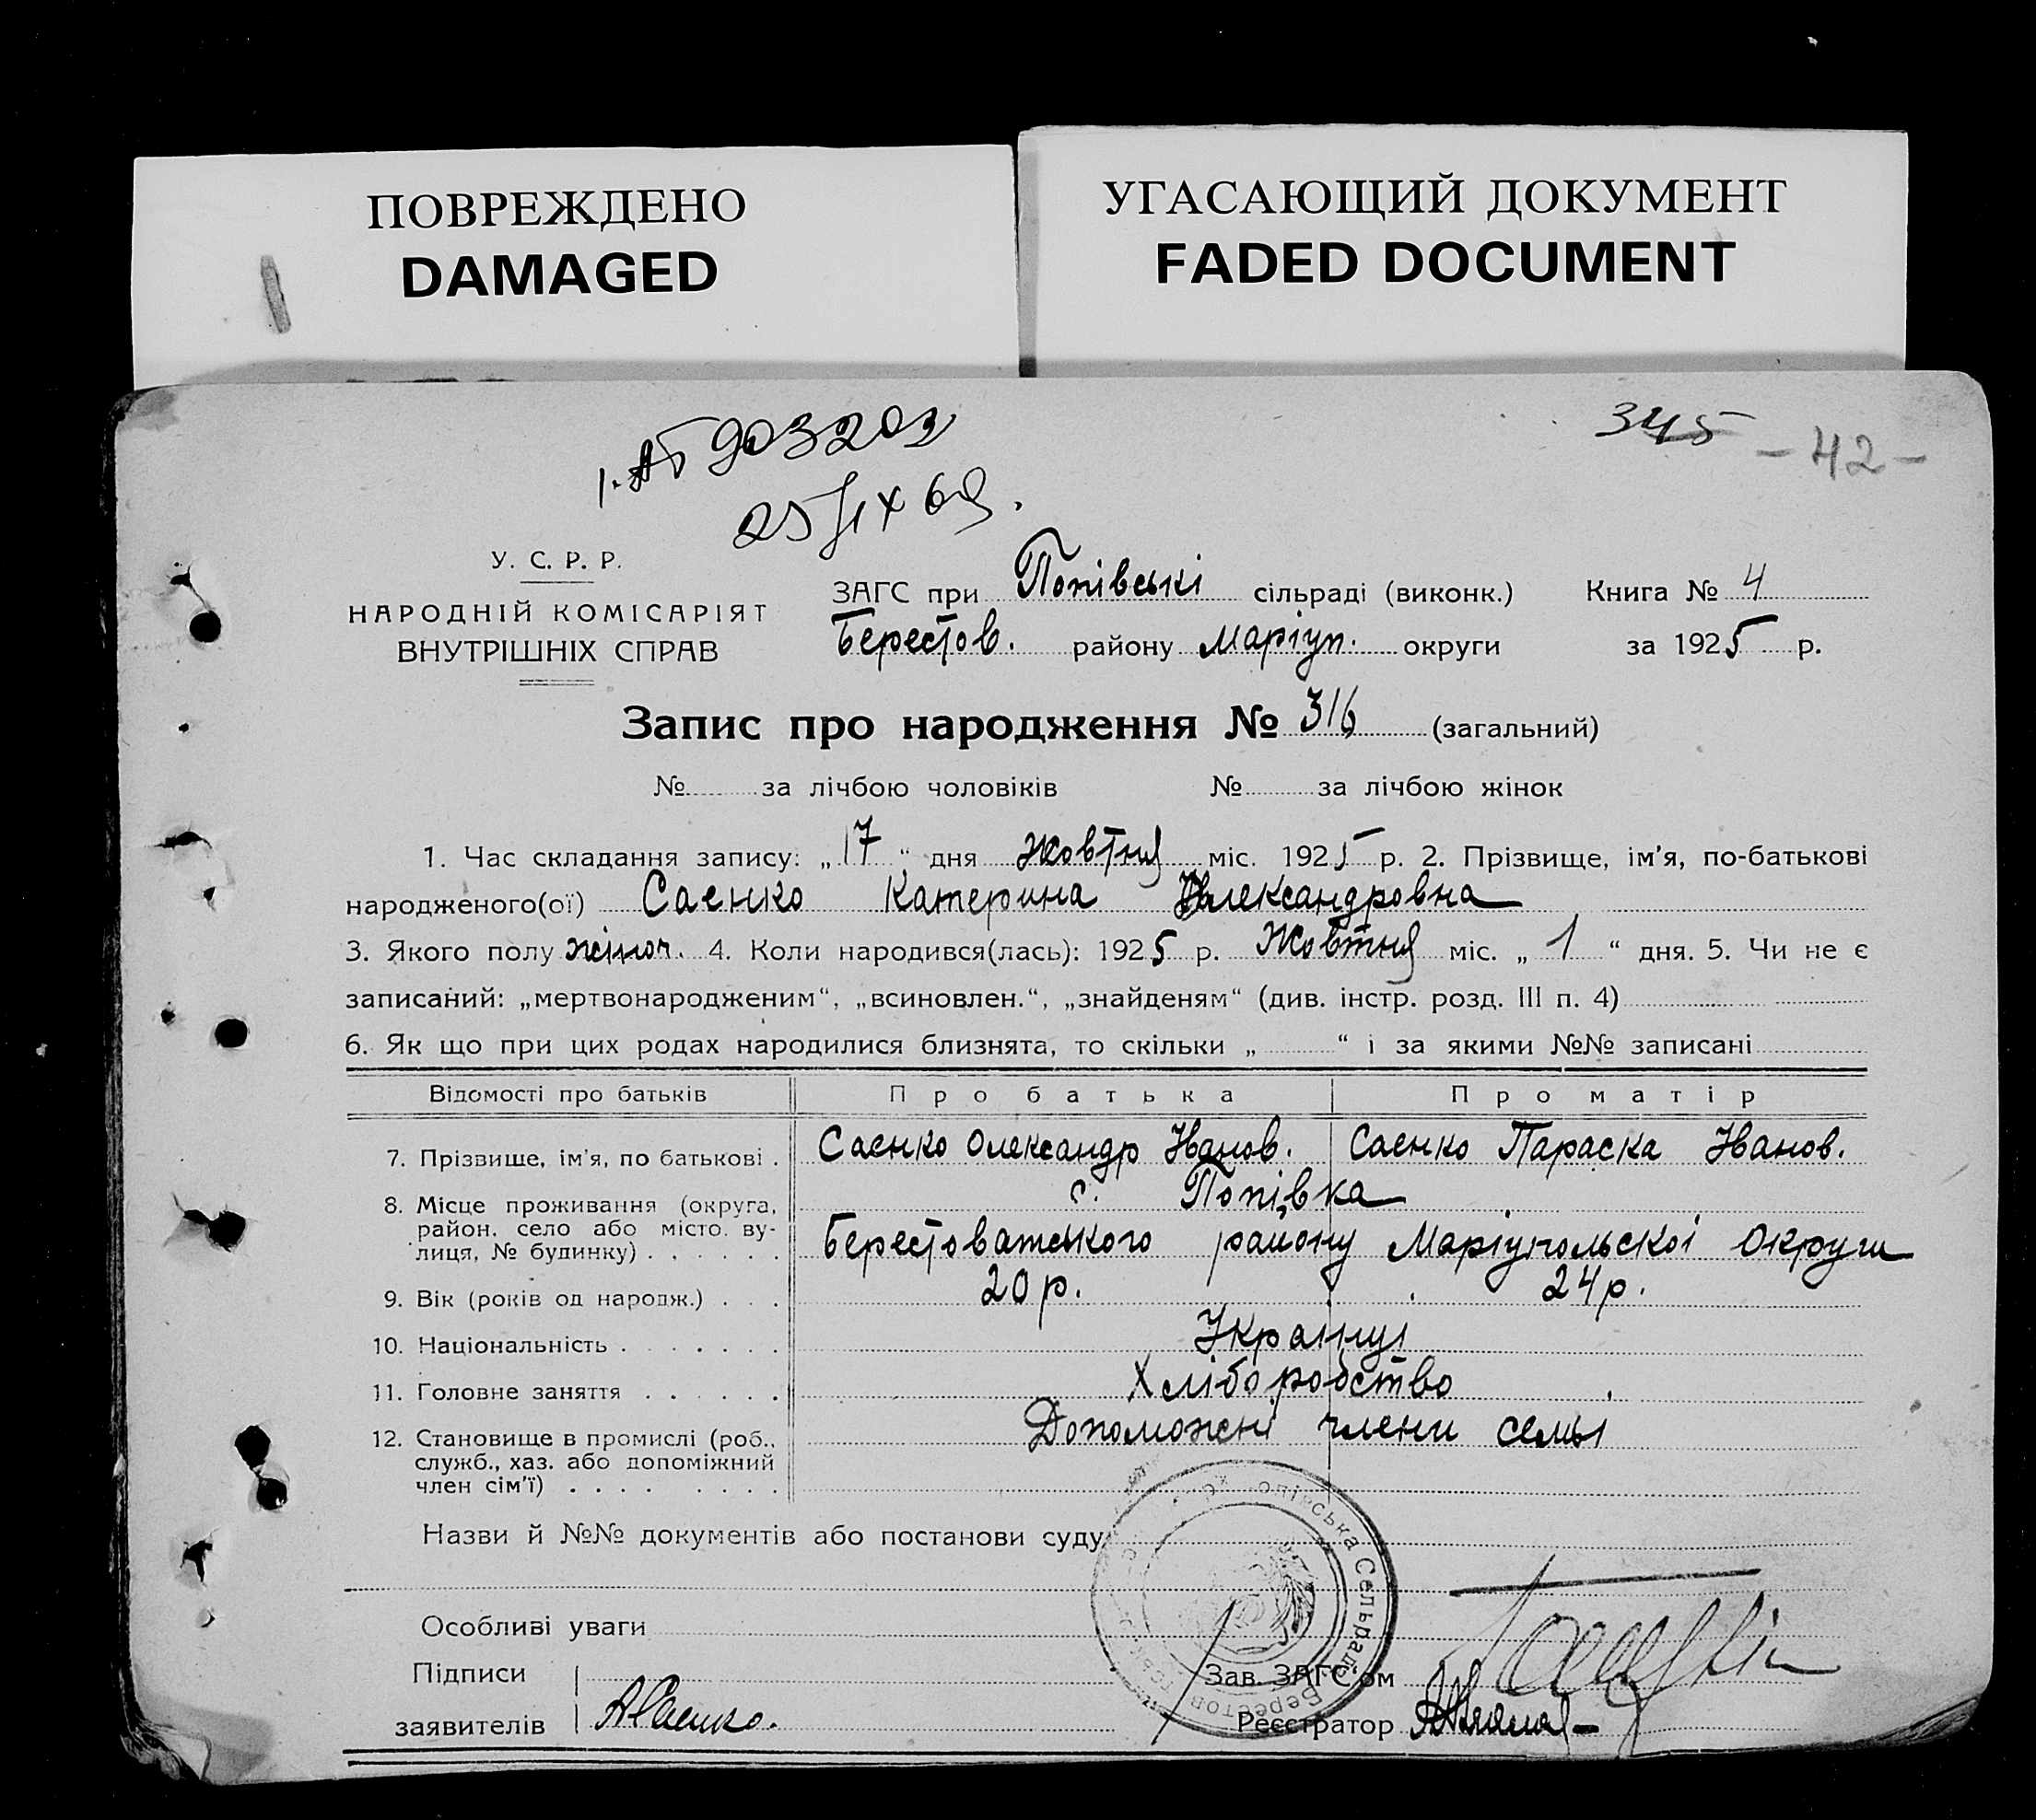 ПОВРЕЖДЕНО
DAMAGED
УГАСАЮЩИЙ ДОКУМЕНТ
FADED DOCUMENT
345 - 42 -
903203
25/IX 69.
У. С. Р. Р.
НАРОДНІЙ КОМІСАРІЯТ
ВНУТРІШНІХ СПРАВ
ЗАГС при Попівські сільраді (виконк.) Книга № 4
Берестов. району Маріуп. округи за 1925 р.
Запис про народження № 316 (загальний)
№ за лічбою чоловіків № за лічбою жінок
1. Час складання запису: „17“ дня Жовтня міс. 1925 р. 2. Прізвище, ім'я, по-батькові
народженого(ої) Саєнко Катерина Олександровна
3. Якого полу жіноч. 4. Коли народився(лась): 1925 р. Жовтня міс. „1“ дня. 5. Чи не є
записаний: „мертвонародженим“, „всиновлен.“, „знайденям“ (див. інстр. розд. III п. 4)
6. Як що при цих родах народилися близнята, то скільки „ “ і за якими №№ записані
Відомості про батьків Про батька Про матір
7. Прізвище, ім'я, по батькові . Саєнко Олександр Іванов. Саєнко Параска Іванов.
8. Місце проживання (округа, район, село або місто, вулиця, № будинку) . . . . . .
с. Попівка
Берестоватського району Маріупольскоі Округи
9. Вік (років од народж.) . . . 20 р. 24 р.
10. Національність . . . . . . . Українці
11. Головне заняття . . . . . Хліборобство
12. Становище в промислі (роб., служб., хаз. або допоміжний член сім'ї) . . . . . . . .
Допоможні члени семьі
Назви й №№ документів або постанови суду
Особливі уваги
Підписи
заявителів АСаєнко.
Зав. ЗАГС'ом
Реєстратор
Сельрада